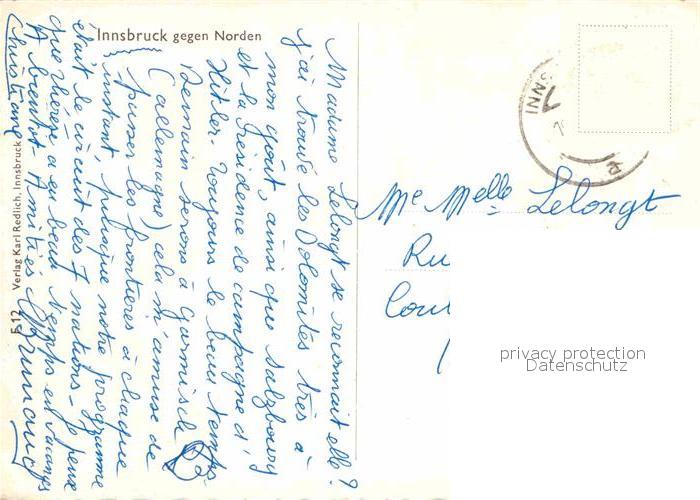 Innsbruck gegen Norden
Madame Lelongt se reconnait elle?
j'ai trouvé les Dolomites très à
mon goût, ainsi que Salzbourg
et la Présidence de campagne d'
Hitler. Toujours le beau temps.
Demain serons à Garmisch
(allemagne) cela m'amuse de
passer les frontières à chaque
instant, puisque notre programme
était le circuit des 7 nations - Je pense
que Thérèse a eu beau temps en vacances
A bientôt. Amitiés
Christiane
E 12 Verlag Karl Redlich, Innsbruck
INNS
Me Melle Lelongt
Ru
Cou
privacy protection
Datenschutz